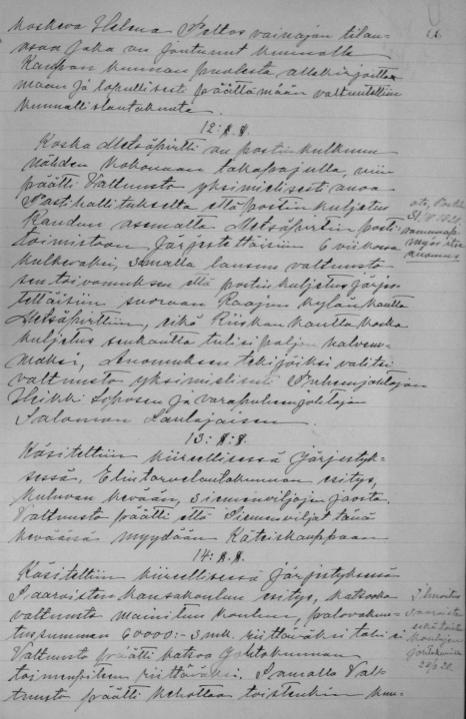 koskeva Helena Peltos vainajan tilan
osaa joka on joutunut kunnalle
Kaupan kunnan puolesta allekirjoitta
maan ja lopullisesti päättämään valtuutettiin
kunnallislautakunta.
12: §. §.
Koska Metsäpirtti on postin kulkuun
nähden kokonaan takapajulla, niin
päätti Valtuusto yksimielisesti anoa
Postihallitukselta että postin kuljetus
Raudun asemalta Metsäpirtin posti-
toimistoon järjestettäisiin 6 viikossa
kulkevaksi, samalla lausuu valtuusto
sen toivomuksen että postin kuljetus järjes
tettäisiin suoraan Raajun kylän kautta
Metsäpirttiin, eikä Riiskan kautta koska
kuljetus sen kautta tulisi paljon kalvem-
maksi, Anomuksen tekijöiksi valitsi
valtuusto yksimielisesti Puheenjohtajan
Heikki Loposen ja varapuheenjohtajan
Salomon Laulajaisen.
13: §: §.
Käsiteltiin kiireellisessä järjestyk-
sessä, Elintarvelautakunnan esitys,
kuluvan kevään, siemenviljojen jaosta.
Valtuusto päätti että Siemenviljat tänä
keväänä myydään Käteiskauppaan
14: §. §.
Käsiteltiin kiireellisessä järjestyksessä
Saaroisten kansakoulun esitys, katsooko
valtuusto mainitun koulun, palovakuu-
tussumman 60000:- Smk. riittäväksi tahi ei
Valtuusto päätti katsoa Johtokunnan
toimenpiteen riittäväksi. Samalla Val-
tuusto päätti kehottaa toistenkin kou-